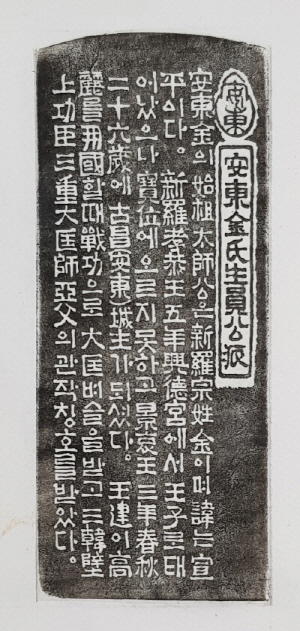 安東
安東金氏生員公派
安東金의 始祖太師公은 新羅宗姓金이며 諱는 宣
平이다. 新羅孝恭王五年興德宮에서 王子로태
어났으나 寶位에오르지못하고 景哀王 三年春秋
二十六歲에 古昌(安東)城主가 되셨다. 王建이高
麗를 開國할때 戰功으로 大匡벼슬을 받고 三韓壁
上功臣三重大匡師亞父의 관작칭호를 받았다.